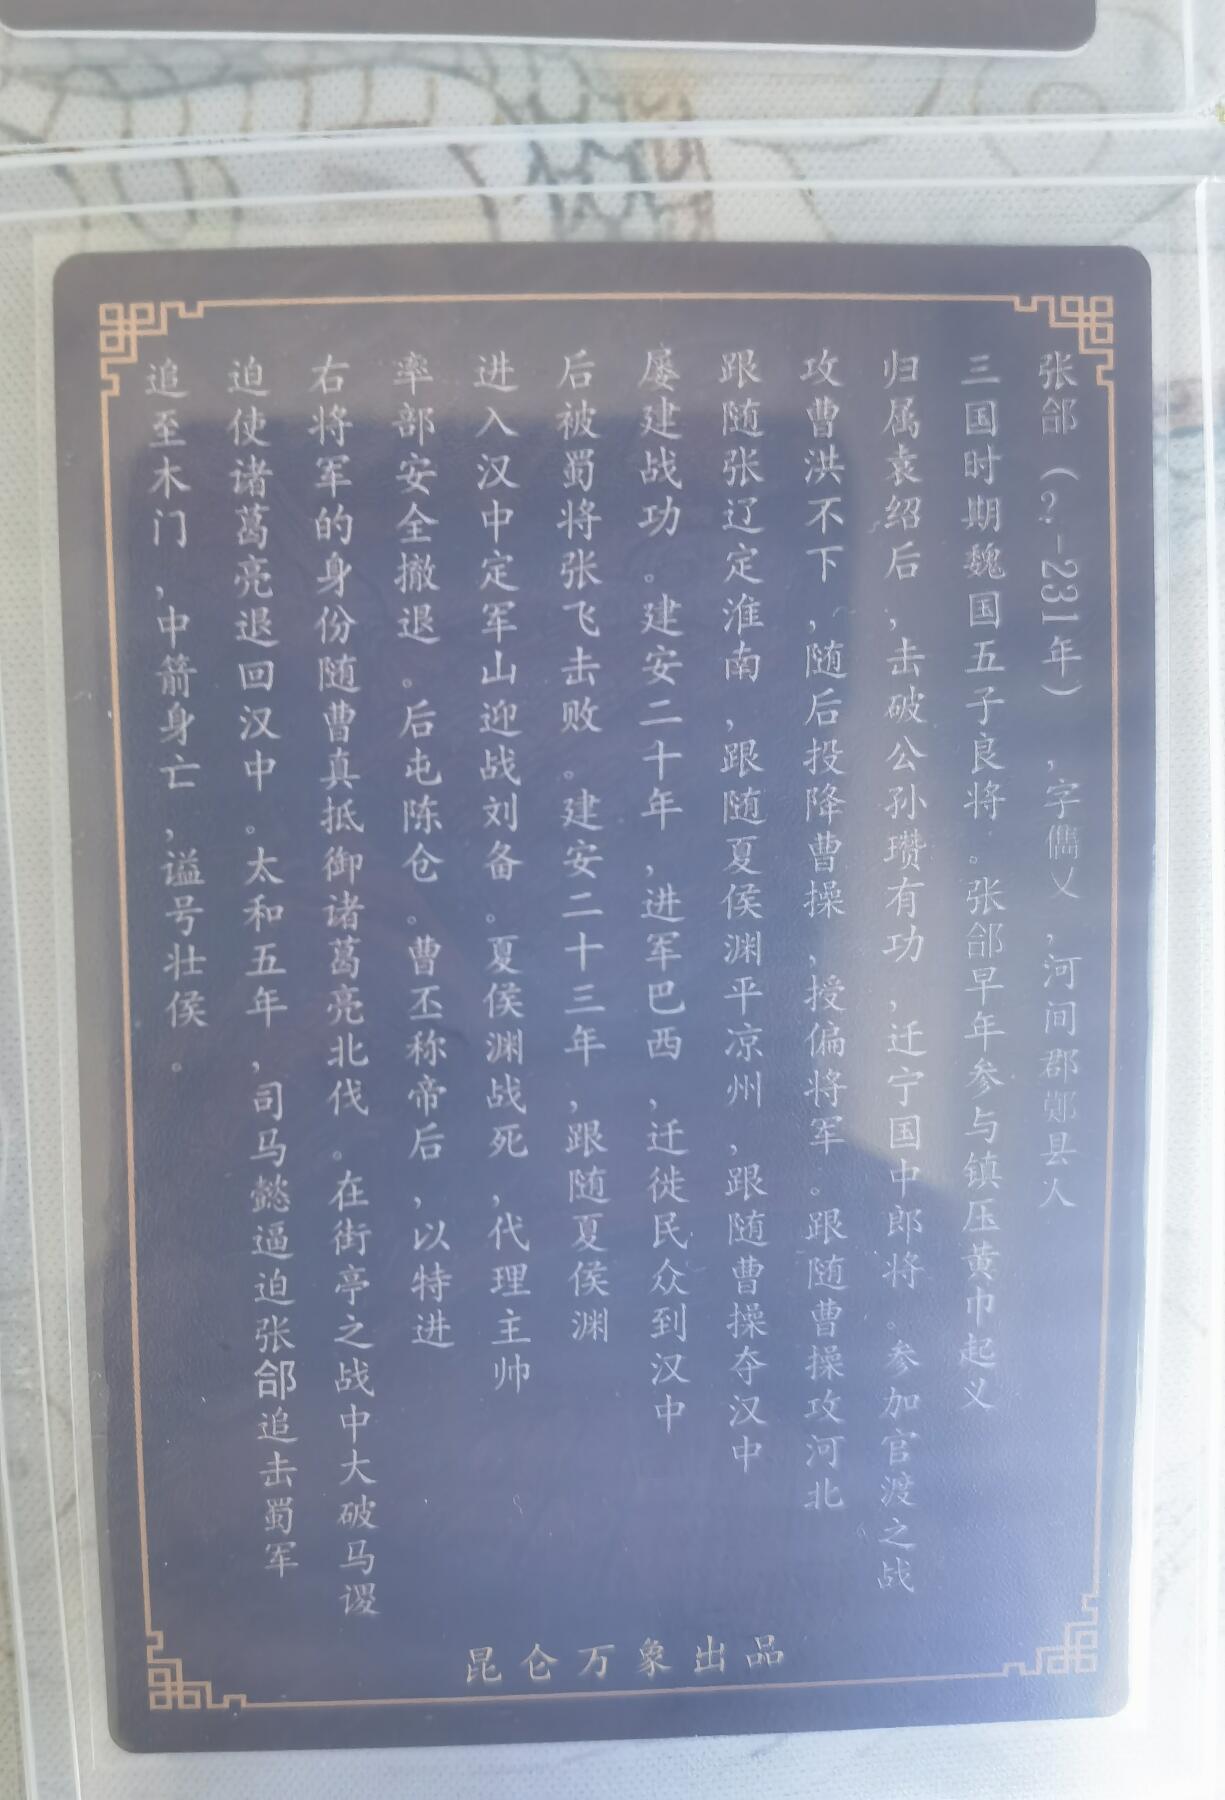 张郃（?-231年），字儁乂，河间郡鄚县人
三国时期魏国五子良将。张郃早年参与镇压黄巾起义
归属袁绍后，击破公孙瓒有功，迁宁国中郎将。参加官渡之战
攻曹洪不下，随后投降曹操，授偏将军。跟随曹操攻河北
跟随张辽定淮南，跟随夏侯渊平凉州，跟随曹操夺汉中
屡建战功。建安二十年，进军巴西，迁徙民众到汉中
后被蜀将张飞击败。建安二十三年，跟随夏侯渊
进入汉中定军山迎战刘备。夏侯渊战死，代理主帅
率部安全撤退。后屯陈仓。曹丕称帝后，以特进
右将军的身份随曹真抵御诸葛亮北伐。在街亭之战中大破马谡
迫使诸葛亮退回汉中。太和五年，司马懿逼迫张郃追击蜀军
追至木门，中箭身亡，谥号壮侯。
昆仑万象出品